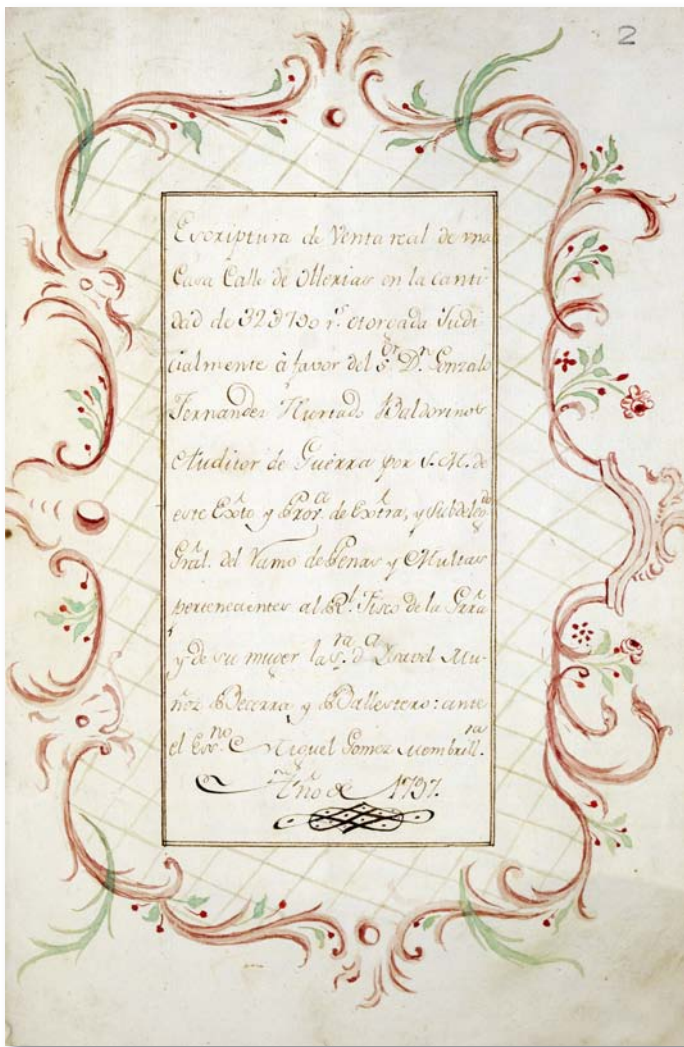 2
Escriptura de Venta real de una
Casa Calle de Ollerias en la canti-
dad de 32D790 r.s otorgada Judi-
cialmente à favor del S.or D.n Gonzalo
Fernandez Hurtado Valdovinos
Auditor de Guerra por S.M. de
este Ex.to y Prov.a de Extra, y Subdeleg.do
Gral. del Ramo de Penas y Multas
pertenecientes al R.l Fisco de la Grra
y de su muger la S.ra d.a Ysavel Mu-
ñoz Becerra y Ballestero: ante
el Ess.no Miguel Gomez Membrill.ra
Año de 1797.